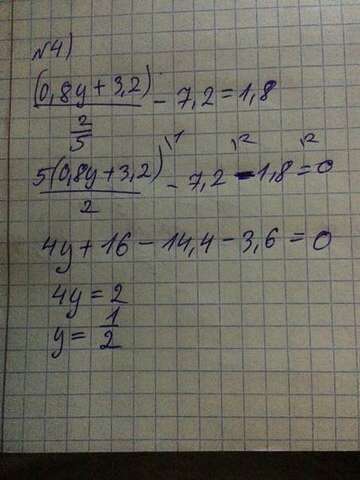 №4)
(0,8y + 3,2) / (2/5) - 7,2 = 1,8
5(0,8y + 3,2) \1 / 2 - 7,2 \2 - 1,8 \2 = 0
4y + 16 - 14,4 - 3,6 = 0
4y = 2
y = 1/2